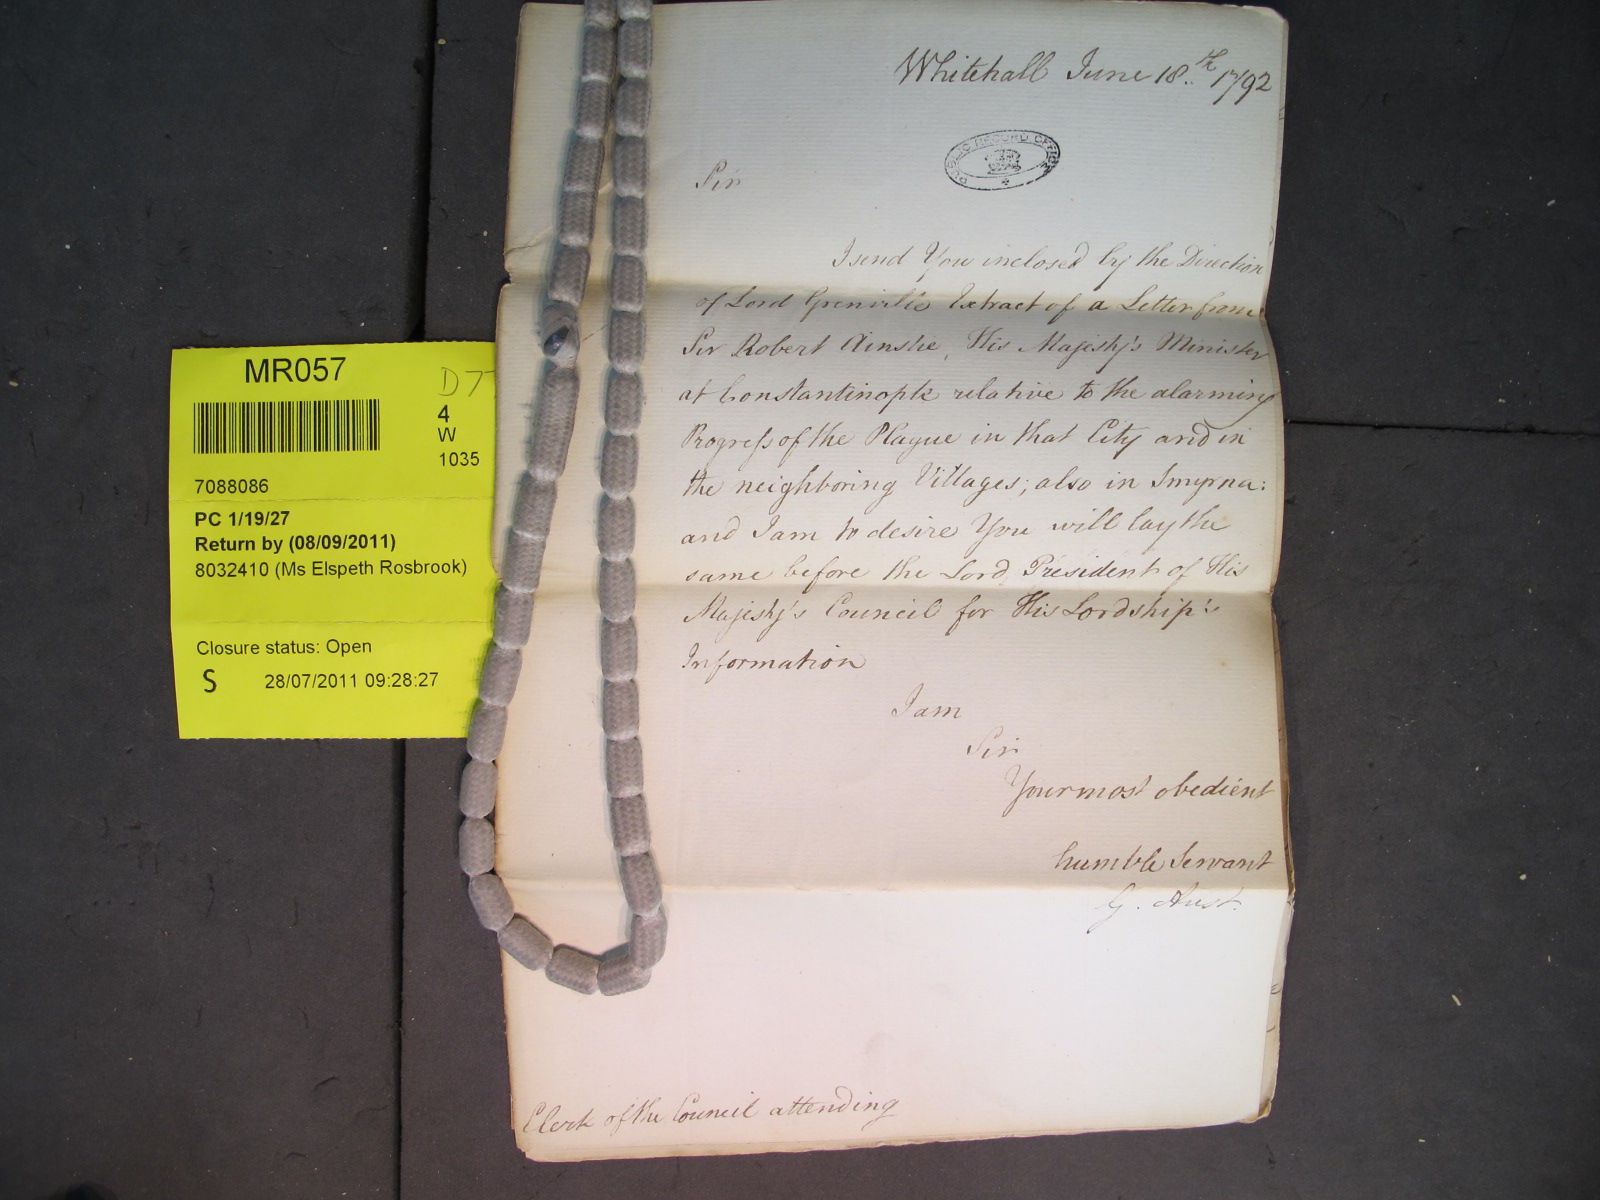 Whitehall June 18.th 1792
PUBLIC RECORD OFFICE
Sir
I send You inclosed by the Direction
of Lord Grenville Extract of a Letter from
Sir Robert Ainslie, His Majesty's Minister
at Constantinople relative to the alarming
Progress of the Plague in that City and in
the neighboring Villages; also in Smyrna:
and I am to desire You will lay the
same before the Lord President of His
Majesty's Council for His Lordship's
Information
I am
Sir
Your most obedient
humble Servant
G. Aust.
Clerk of the Council attending
MR057
D77
4
W
1035
7088086
PC 1/19/27
Return by (08/09/2011)
8032410 (Ms Elspeth Rosbrook)
Closure status: Open
S 28/07/2011 09:28:27